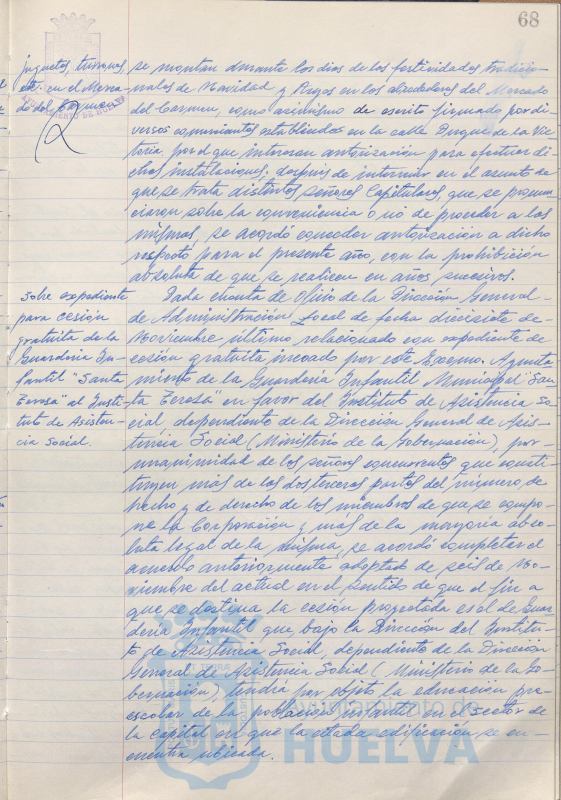 68
juguetes, turrones,
etc. en el Merca-
do del Carmen.
se montan durante los dias de las festividades tradicio-
nales de Navidad y Reyes en los alrededores del Mercado
del Carmen, como asimismo de escrito firmado por di-
versos comerciantes establecidos en la calle Duque de la Vic-
toria, por el que interesan autorización para efectuar di-
chas instalaciones; después de intervenir en el asunto de
que se trata distintos señores Capitulares, que se pronun-
ciaron sobre la conveniencia o no de proceder a las
mismas, se acordó conceder autorización a dicho
respecto para el presente año, con la prohibición
absoluta de que se realicen en años sucesivos.
Sobre expediente
para cesión
gratuita de la
Guardería In-
fantil "Santa
Teresa" al Insti-
tuto de Asisten-
cia Social.
Dada cuenta de oficio de la Dirección General
de Administración Local de fecha diecisiete de
Noviembre último relacionado con expediente de
cesión gratuita incoado por este Excmo. Ayunta-
miento de la Guardería Infantil Municipal "San-
ta Teresa" en favor del Instituto de Asistencia So-
cial, dependiente de la Dirección General de Asis-
tencia Social (Ministerio de la Gobernación), por
unanimidad de los señores concurrentes que consti-
tuyen más de las dos terceras partes del número de
hecho y de derecho de los miembros de que se compo-
ne la Corporación y más de la mayoría abso-
luta legal de la misma, se acordó completar el
acuerdo anteriormente adoptado de seis de No-
viembre del actual en el sentido de que el fin a
que se destina la cesión proyectada es el de Guar-
dería Infantil que, bajo la Dirección del Institu-
to de Asistencia Social, dependiente de la Dirección
General de Asistencia Social (Ministerio de la Go-
bernación), tendrá por objeto la educación pre-
escolar de la población infantil en el Sector de
la capital en que la citada edificación se en-
cuentra ubicada.
Ayuntamiento de
HUELVA